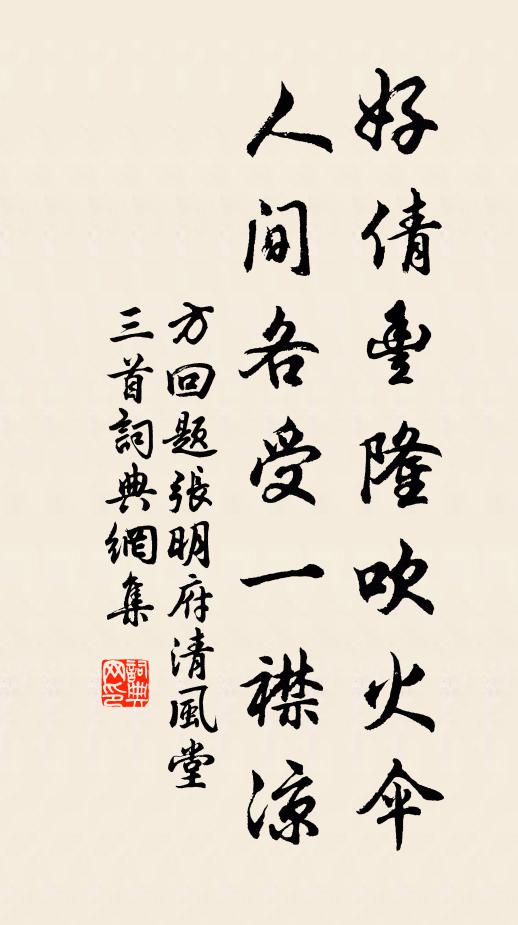 好倩豐隆吹火傘
人间各受一襟涼
方回题張明府清風堂
三首詞典網集
詞典网印